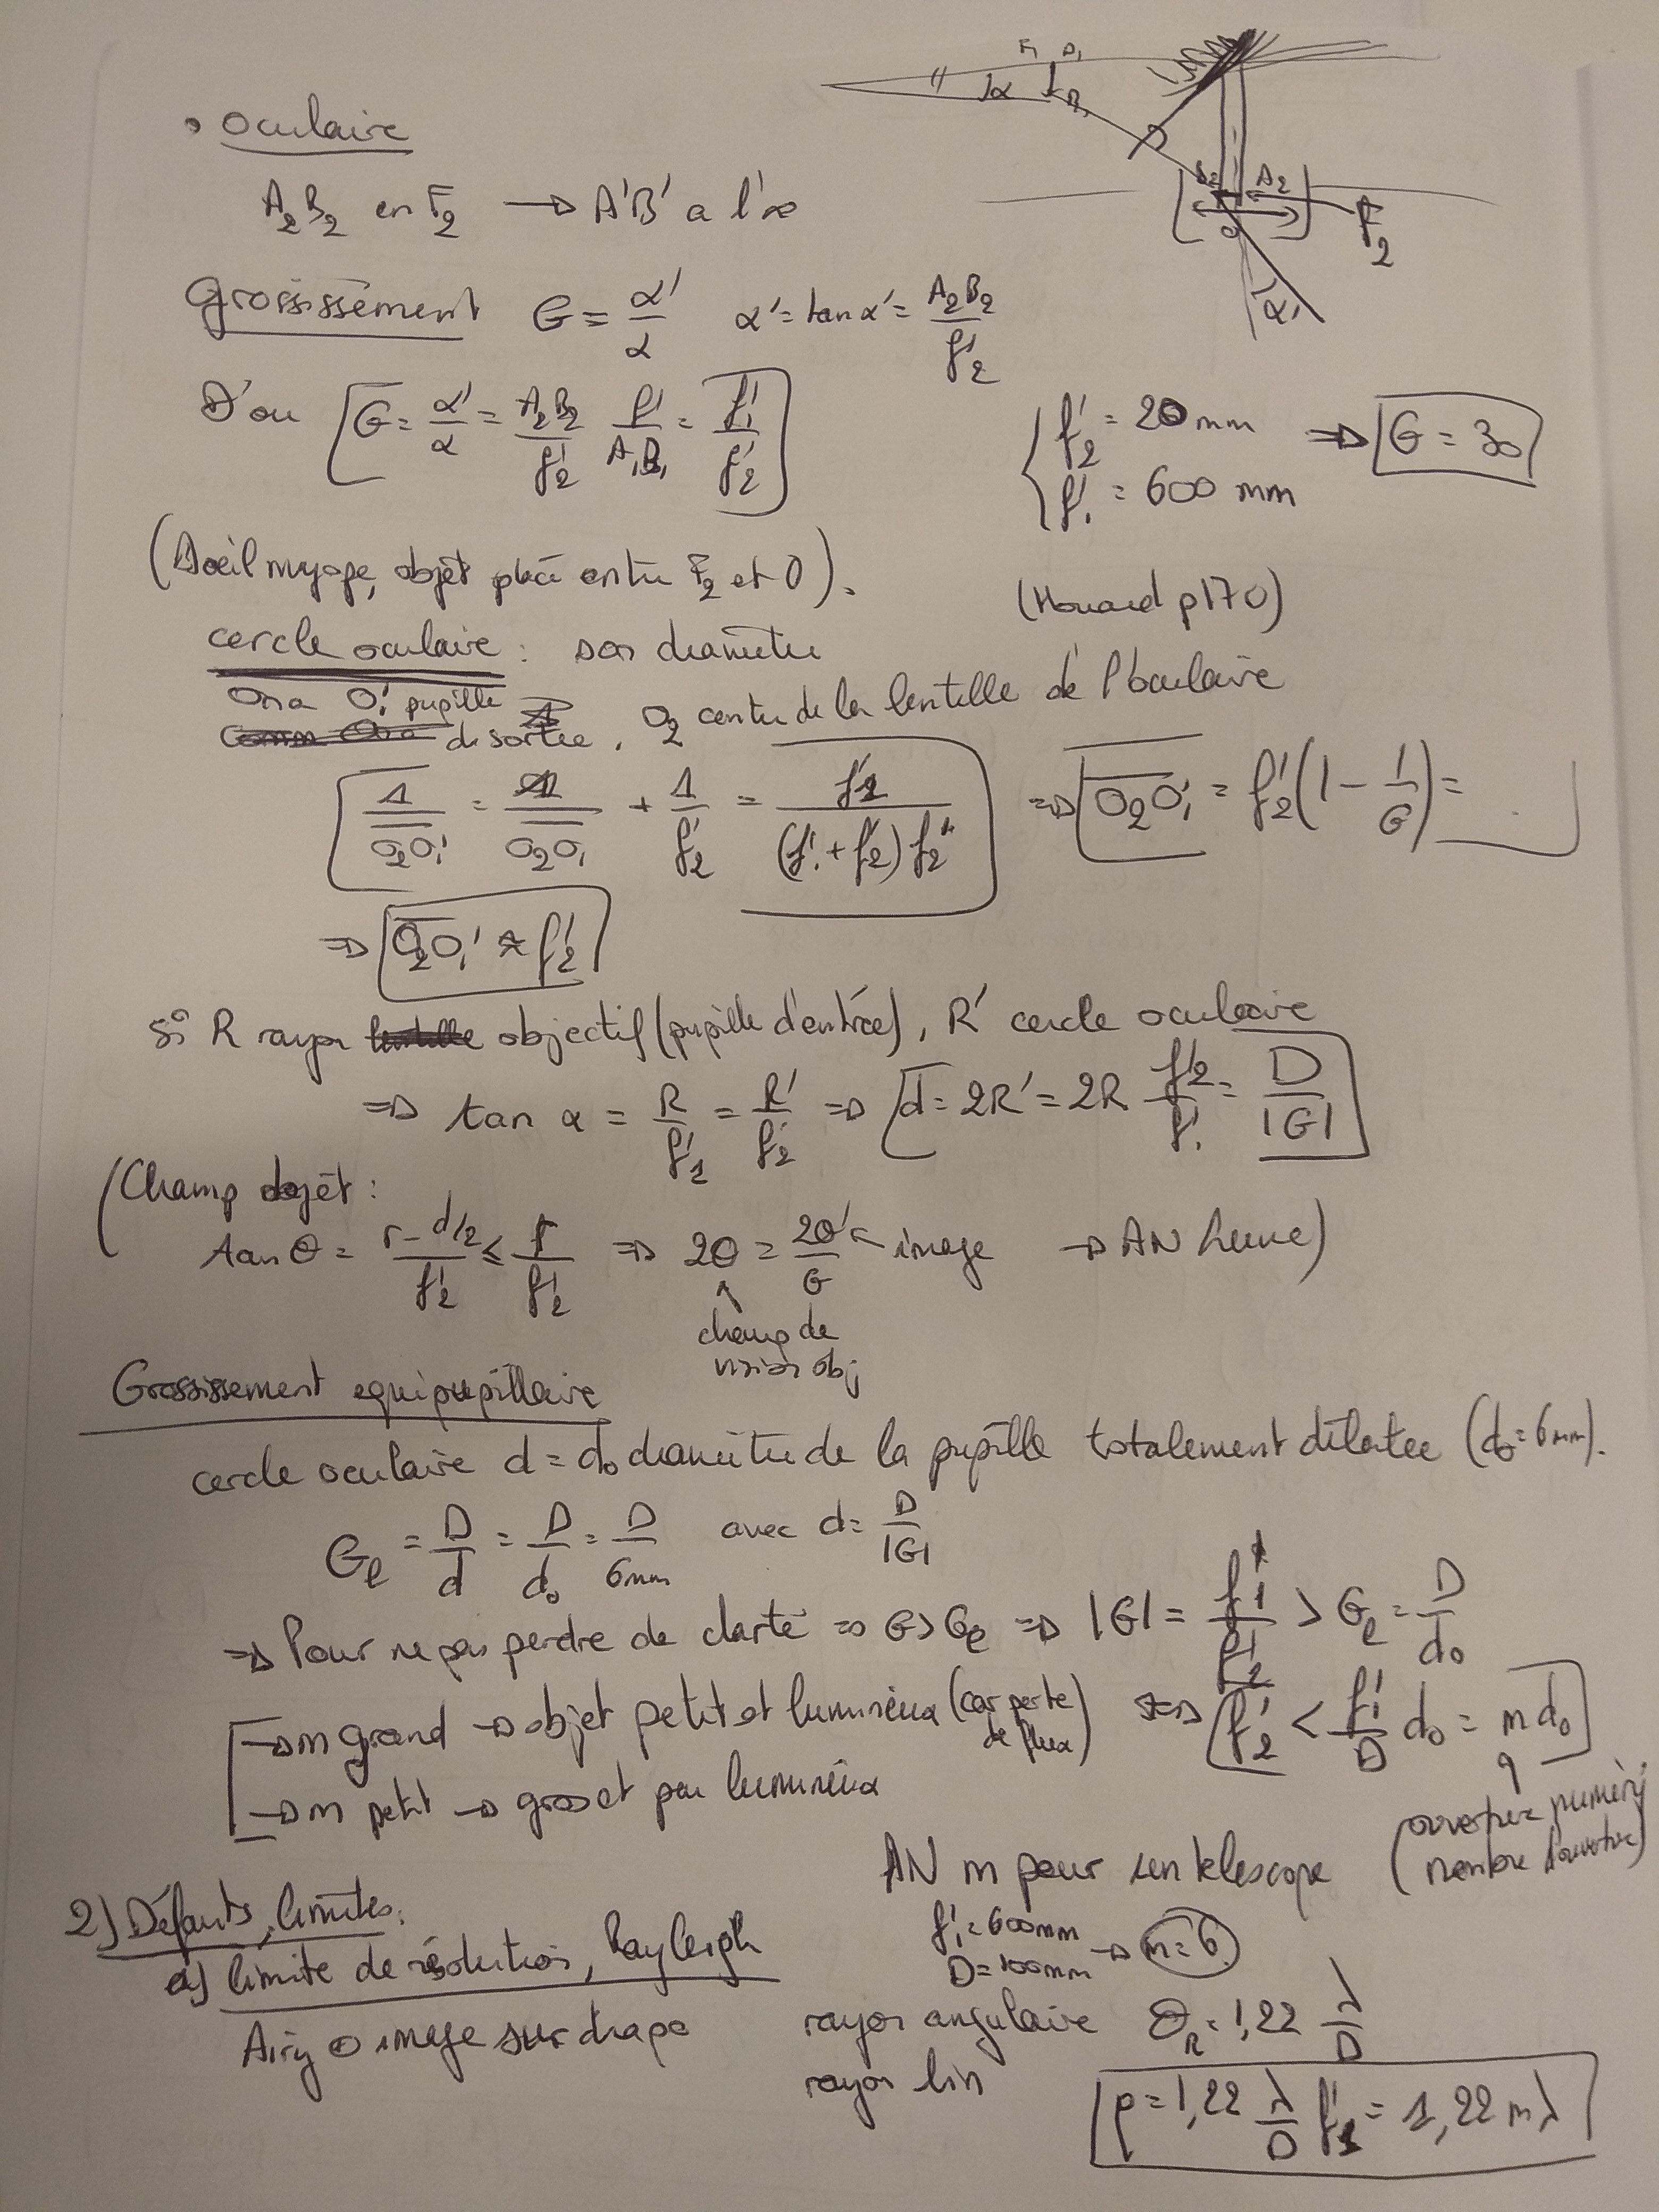 • oculaire
A₂B₂ en F₂ → A'B' a l'∞
F₁ A₁
α
B₁
B₂ A₂
O
F₂
α'
Grossissement G = α'/α α' = tan α' = A₂B₂/f'₂
D'ou G = α'/α = A₂B₂/f'₂ f'₁/A₁B₁ = f'₁/f'₂
{ f'₂ = 20 mm
f'₁ = 600 mm ⇒ G = 30
(Δ oeil myope, objet placé entre F₂ et O).
(Houard p170)
cercle oculaire : son diamètre
On a O'₁ pupille
de sortie, O₂ centre de la lentille de l'oculaire
1/O₂O'₁ = 1/O₂O₁ + 1/f'₂ = f'₁/(f'₁+f'₂)f'₂ ⇒ O₂O'₁ = f'₂(1 - 1/G) =
⇒ O₂O'₁ ≈ f'₂
si R rayon objectif (pupille d'entrée), R' cercle oculaire
⇒ tan α = R/f'₁ = R'/f'₂ ⇒ d = 2R' = 2R f'₂/f'₁ = D/|G|
(Champ objet :
tan θ = (r - d/2)/f'₂ ≤ r/f'₂ ⇒ 2θ = 2θ'/G ← image → AN lune)
champ de
vision obj
Grossissement equipupillaire
cercle oculaire d = d₀ diamètre de la pupille totalement dilatee (d₀ = 6mm).
Ge = D/d = D/d₀ = D/6mm avec d = D/|G|
⇒ Pour ne pas perdre de clarté ⇒ G > Ge ⇒ |G| = f'₁/f'₂ > Ge = D/d₀
→ m grand → objet petit et lumineux (car perte de flux) ⇔ f'₂ < f'₁/D d₀ = m d₀
→ m petit → gros et peu lumineux
(ouverture numeriq
nombre d'ouverture)
AN m pour un telescope
f'₁ = 600mm
D = 100mm → m = 6
2) Défauts, limites.
a) limite de résolution, Rayleigh
Airy image sur drap
rayon angulaire θ_R = 1,22 λ/D
rayon lin ρ = 1,22 λ/D f'₁ = 1,22 m λ